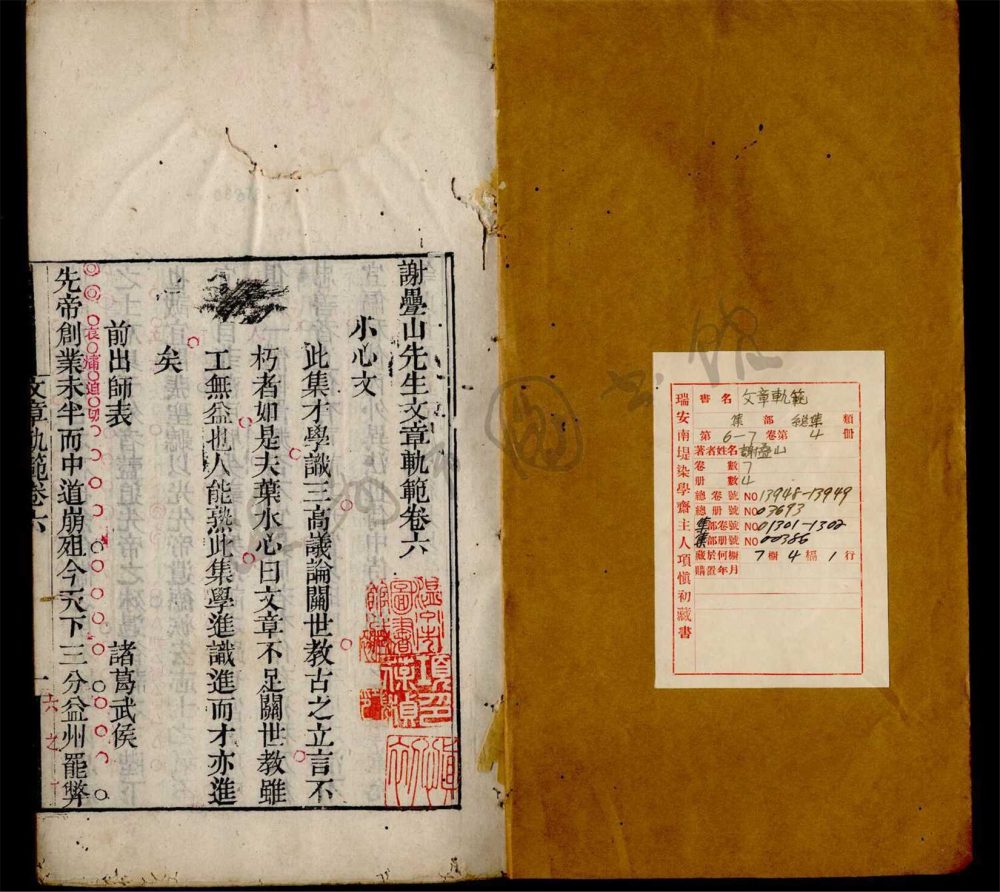 瑞安南堤染學齋主人項慎初藏書
書名 文章軌範
集 部 總集 類
第 6-7 卷第 4 冊
著者姓名 謝疊山
卷數 7
册數 4
總卷號 NO 13948-13949
總册號 NO 03693
集部卷號 NO 01301-1302
集部册號 NO 00386
藏於何櫥 7 櫥 4 槅 1 行
購置年月
謝疊山先生文章軌範卷六
小心文
此集才學識三高議論關世教古之立言不
朽者如是夫葉水心曰文章不足關世教雖
工無益也人能熟此集學進識進而才亦進
矣
前出師表 諸葛武侯
先帝創業未半而中道崩殂今天下三分益州罷弊
文章軌範卷六
一
六之一